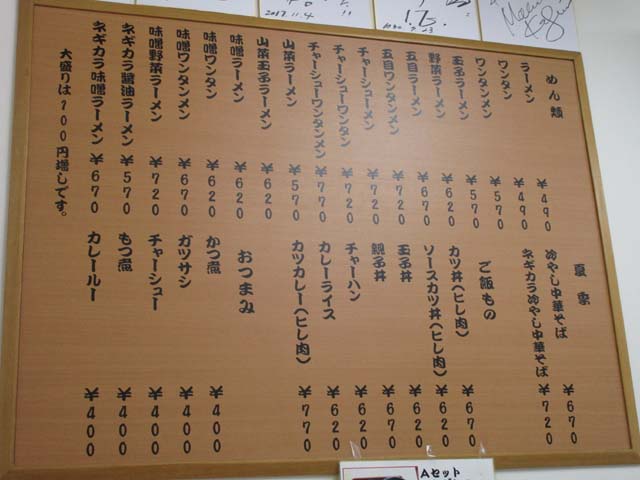 めん類
ラーメン ¥490
ワンタン ¥490
ワンタンメン ¥570
玉子ラーメン ¥570
野菜ラーメン ¥620
五目ラーメン ¥670
五目ワンタンメン ¥720
チャーシューメン ¥720
チャーシューワンタン ¥720
チャーシューワンタンメン ¥770
山菜ラーメン ¥570
山菜玉子ラーメン ¥620
味噌ラーメン ¥620
味噌ワンタン ¥620
味噌ワンタンメン ¥670
味噌野菜ラーメン ¥720
ネギカラ醤油ラーメン ¥570
ネギカラ味噌ラーメン ¥670
大盛りは100円増しです。
夏季
冷やし中華そば ¥670
ネギカラ冷やし中華そば ¥720
ご飯もの
カツ丼(ヒレ肉) ¥670
ソースカツ丼(ヒレ肉) ¥620
玉子丼 ¥620
親子丼 ¥620
チャーハン ¥620
カレーライス ¥620
カツカレー(ヒレ肉) ¥770
おつまみ
かつ煮 ¥400
ガツサシ ¥400
チャーシュー ¥400
もつ煮 ¥400
カレールー ¥400
Aセット